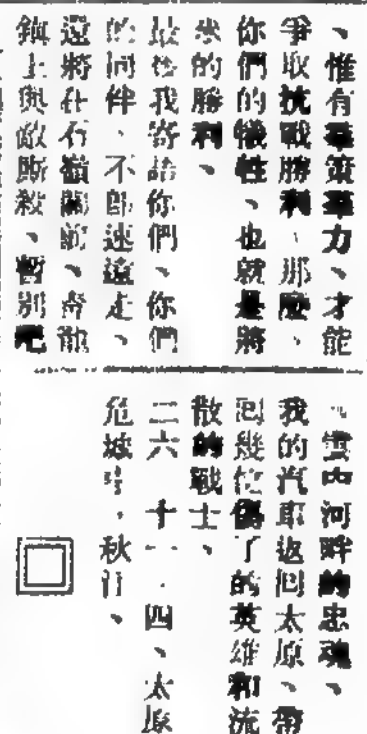 、惟有羣策羣力、才能
爭取抗戰勝利、那麼、
你們的犧牲、也就是將
來的勝利、
最後我寄語你們、你們
的同伴、不卽速遠走、
還將在石嶺關前、奇
鎮上與敵厮殺、暫別吧
、雲內河畔的忠魂、
我的汽車返回太原、帶
回幾位傷了的英雄和流
散的戰士、
二六 十一、四、太原
危城中、秋